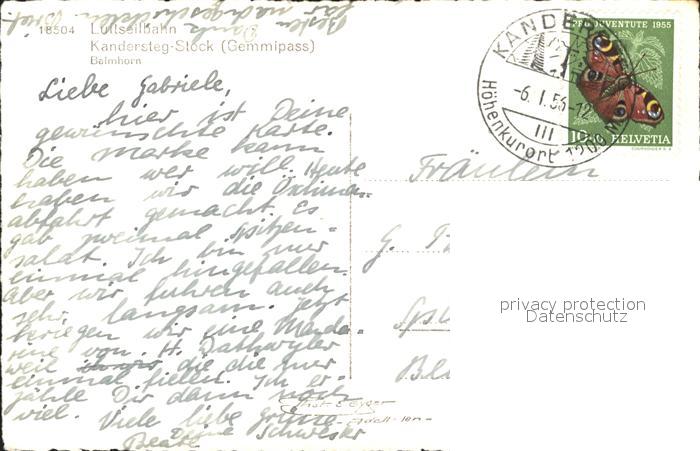 Besten Dank
für nachgeschickten Brief.
18504 Luftseilbahn
Kandersteg-Stock (Gemmipass)
Balmhorn
Liebe Gabriele,
hier ist Deine
gewünschte Karte.
Die Marke kann
haben wer will. Heute
haben wir die
abfahrt gemacht. Es
gab zweimal Spitzen-
salat. Ich bin nur
einmal hingefallen.
Aber wir fuhren auch
sehr langsam. Jetzt
kriegen wir eine Manda-
rine von H. Dattwyler
weil die die nur
einmal fielen. Ich er-
zähle Dir dann noch
viel. Viele liebe Grüsse
Deine Schwester
Beate
Phot. E. Gyger
Adelboden
KANDERS
-6. I. 56-12
III
Höhenkurort 1200 M
PRO JUVENTUTE 1955
10
HELVETIA
COURVOISIER S.A.
Fräulein
G.
privacy protection
Datenschutz